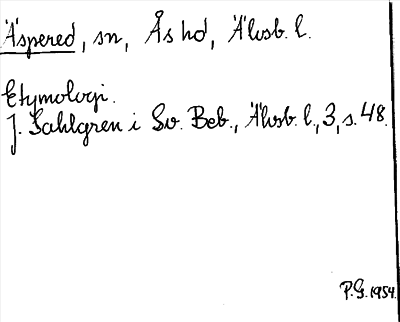 Äspered, sn, Ås hd, Älvsb. l.
Etymologi.
J. Sahlgren i Sv. Beb., Älvsb. l., 3, s. 48.
P.G. 1954.